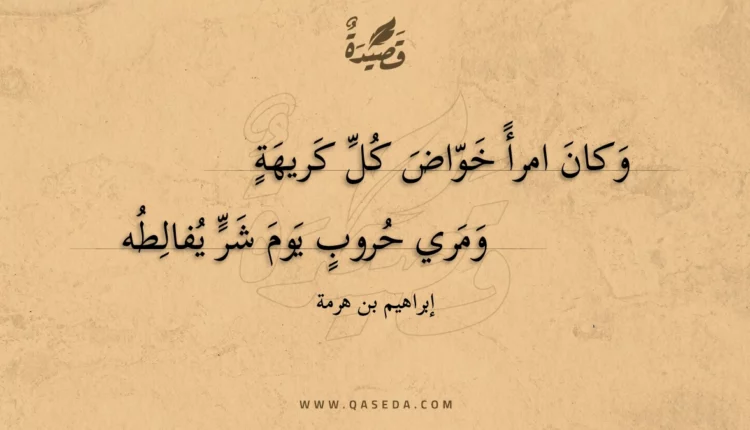 قَصِيْدَةٌ
وَكانَ امرأً خَوّاضَ كُلِّ كَريهَةٍ
وَمَري حُروبٍ يَومَ شَرٍّ يُفالِطُه
إبراهيم بن هرمة
WWW.QASEDA.COM